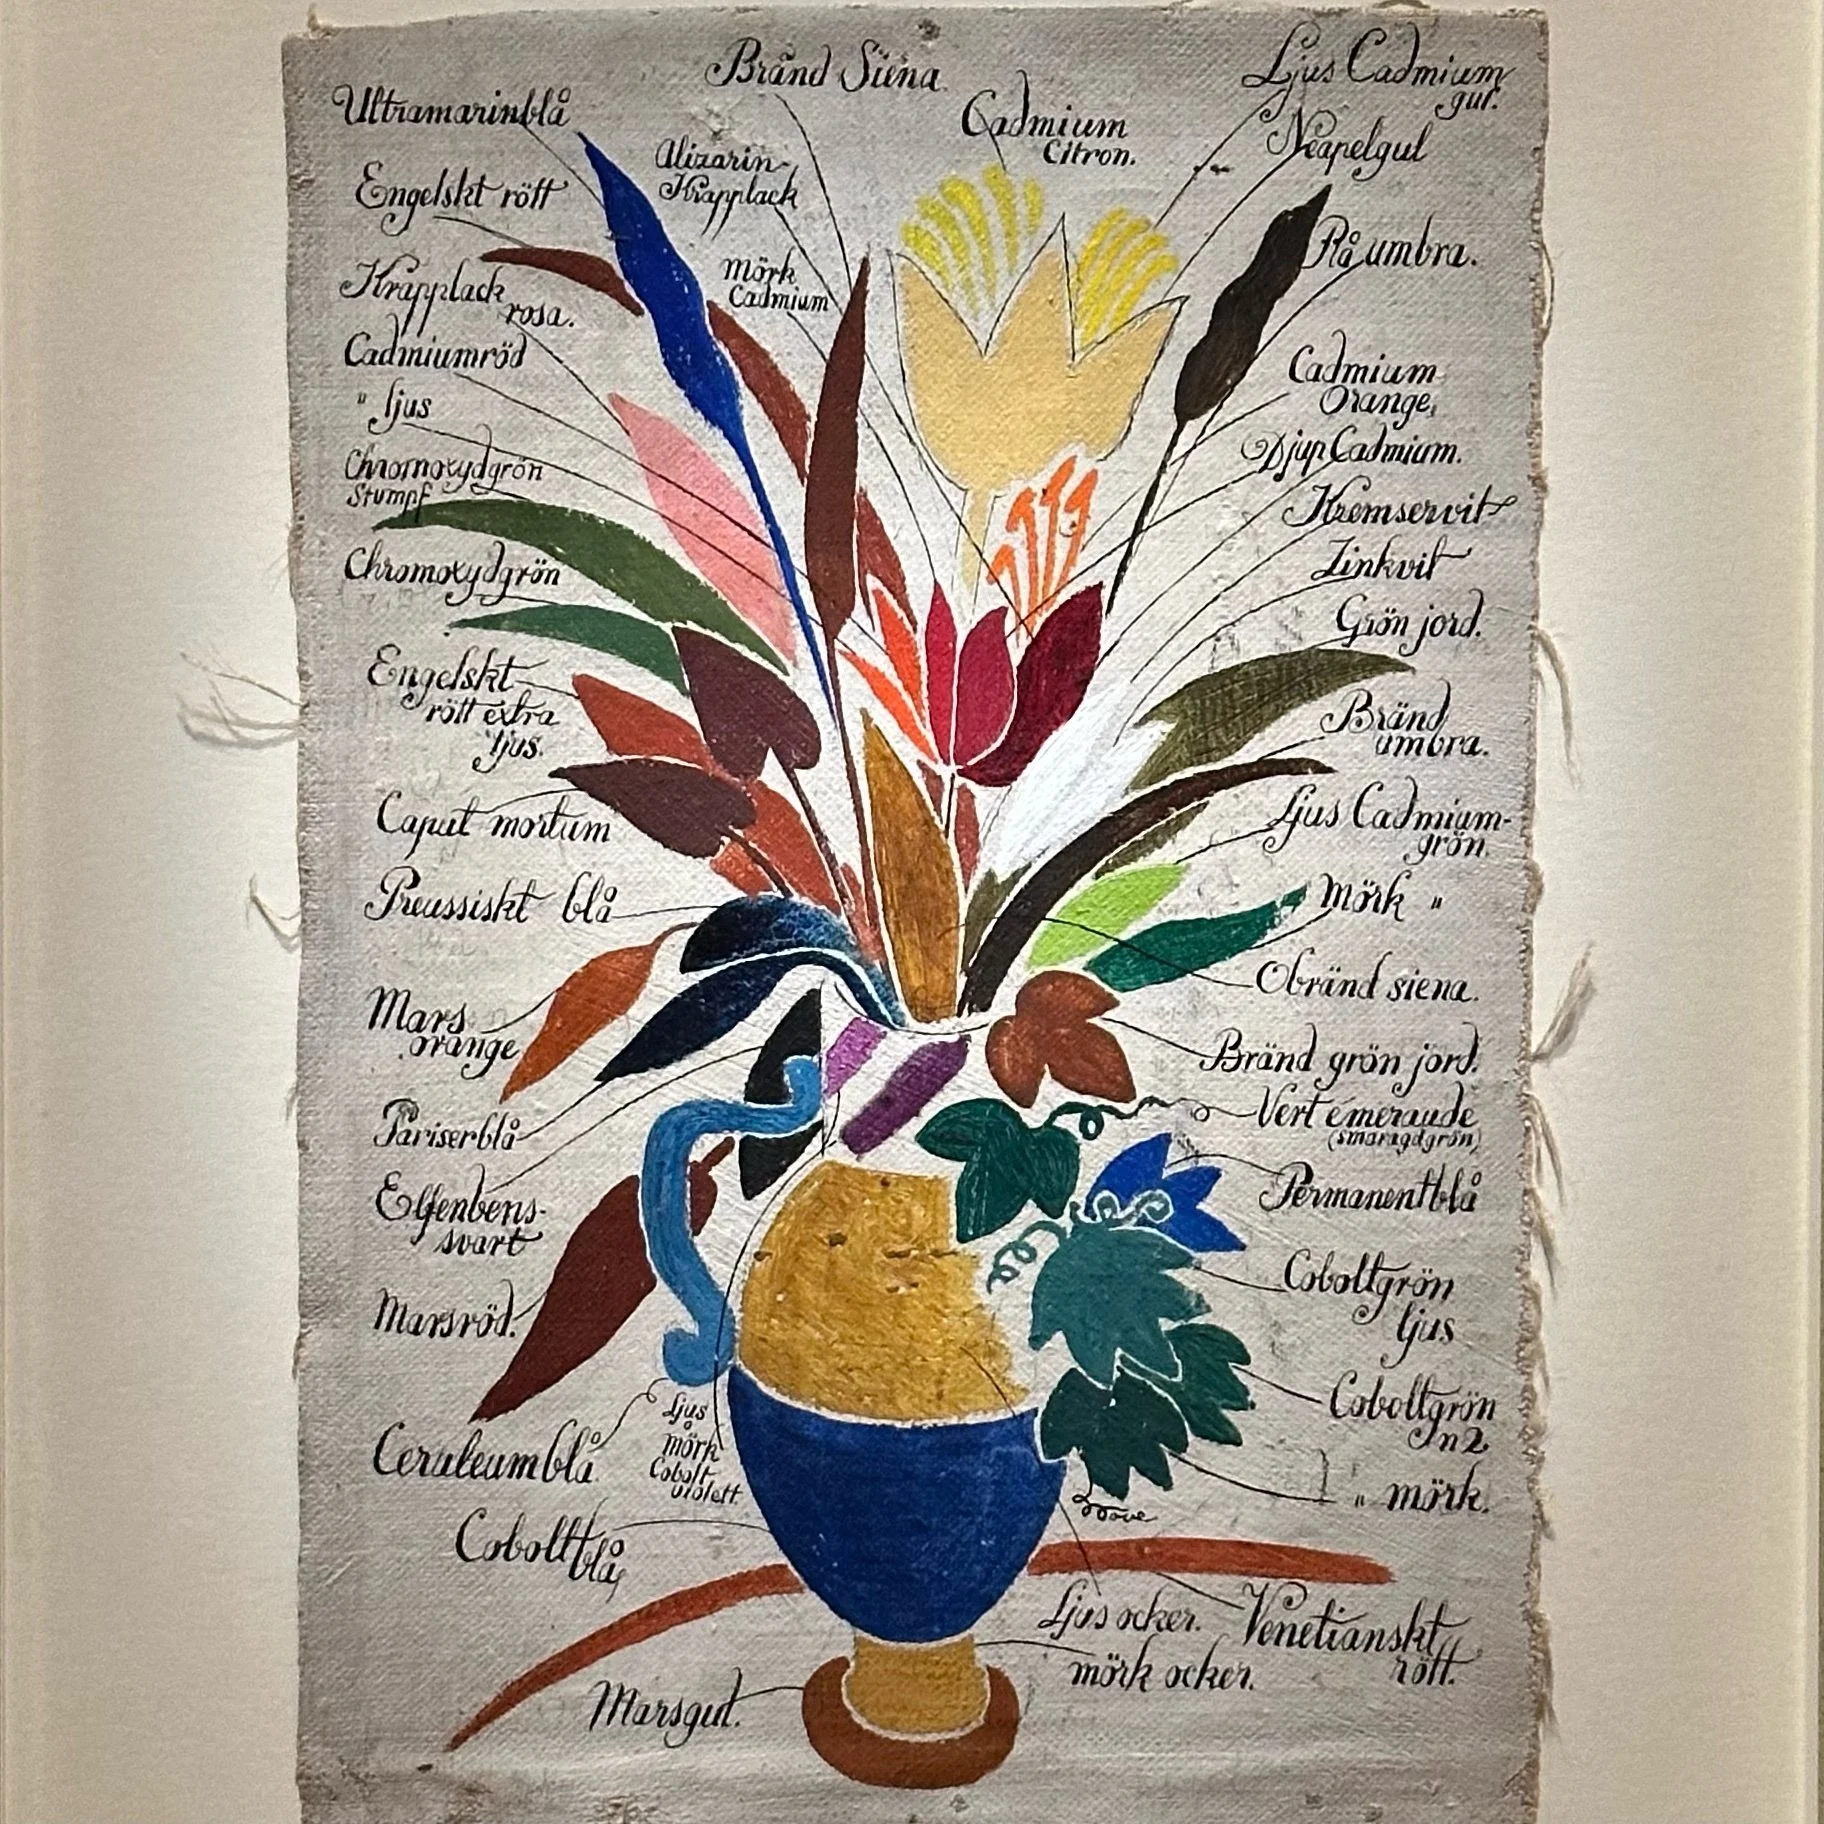 Bränd Siena
Ljus Cadmium
gul.
Ultramarinblå
Cadmium
Citron.
Neapelgul
Alizarin-
Krapplack
Engelskt rött
Rå umbra.
Mörk
Cadmium
Krapplack
rosa.
Cadmiumröd
" ljus
Cadmium
Orange,
Djup Cadmium.
Chromoxydgrön
Stumpf
Kremservit
Zinkvit
Chromoxydgrön
Grön jord.
Engelskt
rött extra
ljus.
Bränd
umbra.
Caput mortum
Ljus Cadmium-
grön.
Preussiskt blå
Mörk "
Obränd siena.
Mars
orange
Bränd grön jord.
Pariserblå
Vert émeraude
(smaragdgrön)
Elfenbens-
svart
Permanentblå
Marsröd.
Coboltgrön
ljus
Ljus
å
mörk
Cobolt
violett.
Coboltgrön
n2
Ceruleumblå
" mörk.
Coboltblå,
Ljus ocker.
Venetianskt
rött.
mörk ocker.
Marsgul.